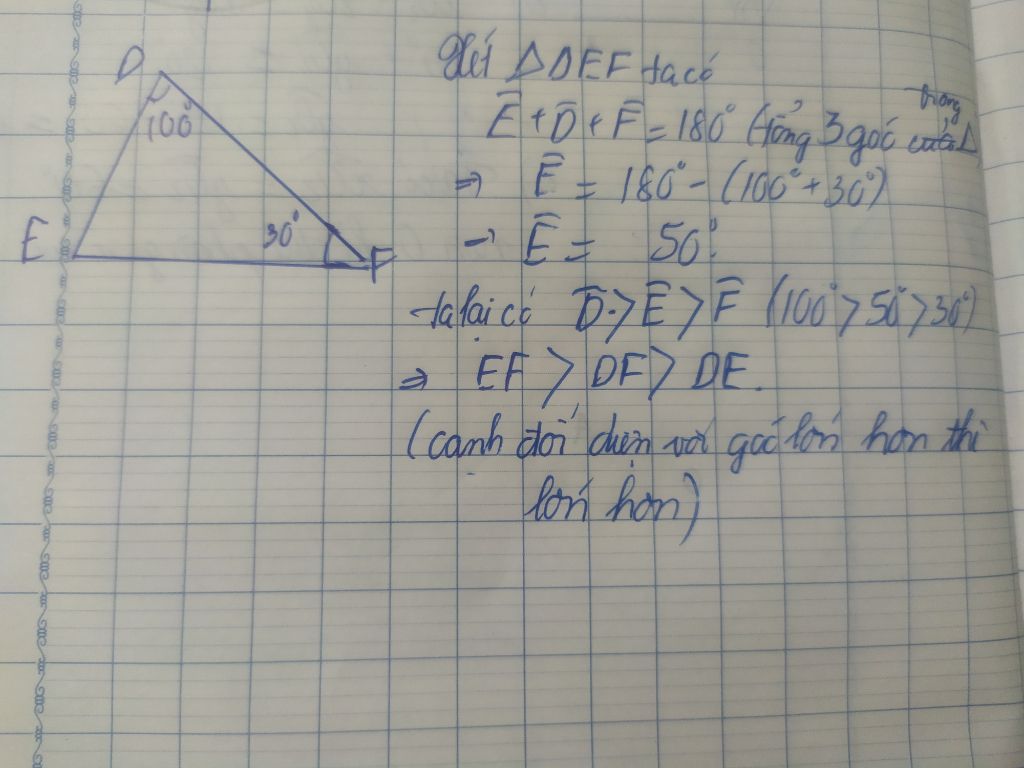 D
100°
E
30°
F
Xét ΔDEF ta có
trong
E̅ + D̅ + F̅ = 180° (tổng 3 góc Δ
⇒ E̅ = 180° - (100° + 30°)
→ E̅ = 50°.
ta lại có D̅ > E̅ > F̅ (100° > 50° > 30°)
⇒ EF > DF > DE.
(cạnh đối diện với góc lớn hơn thì
lớn hơn)